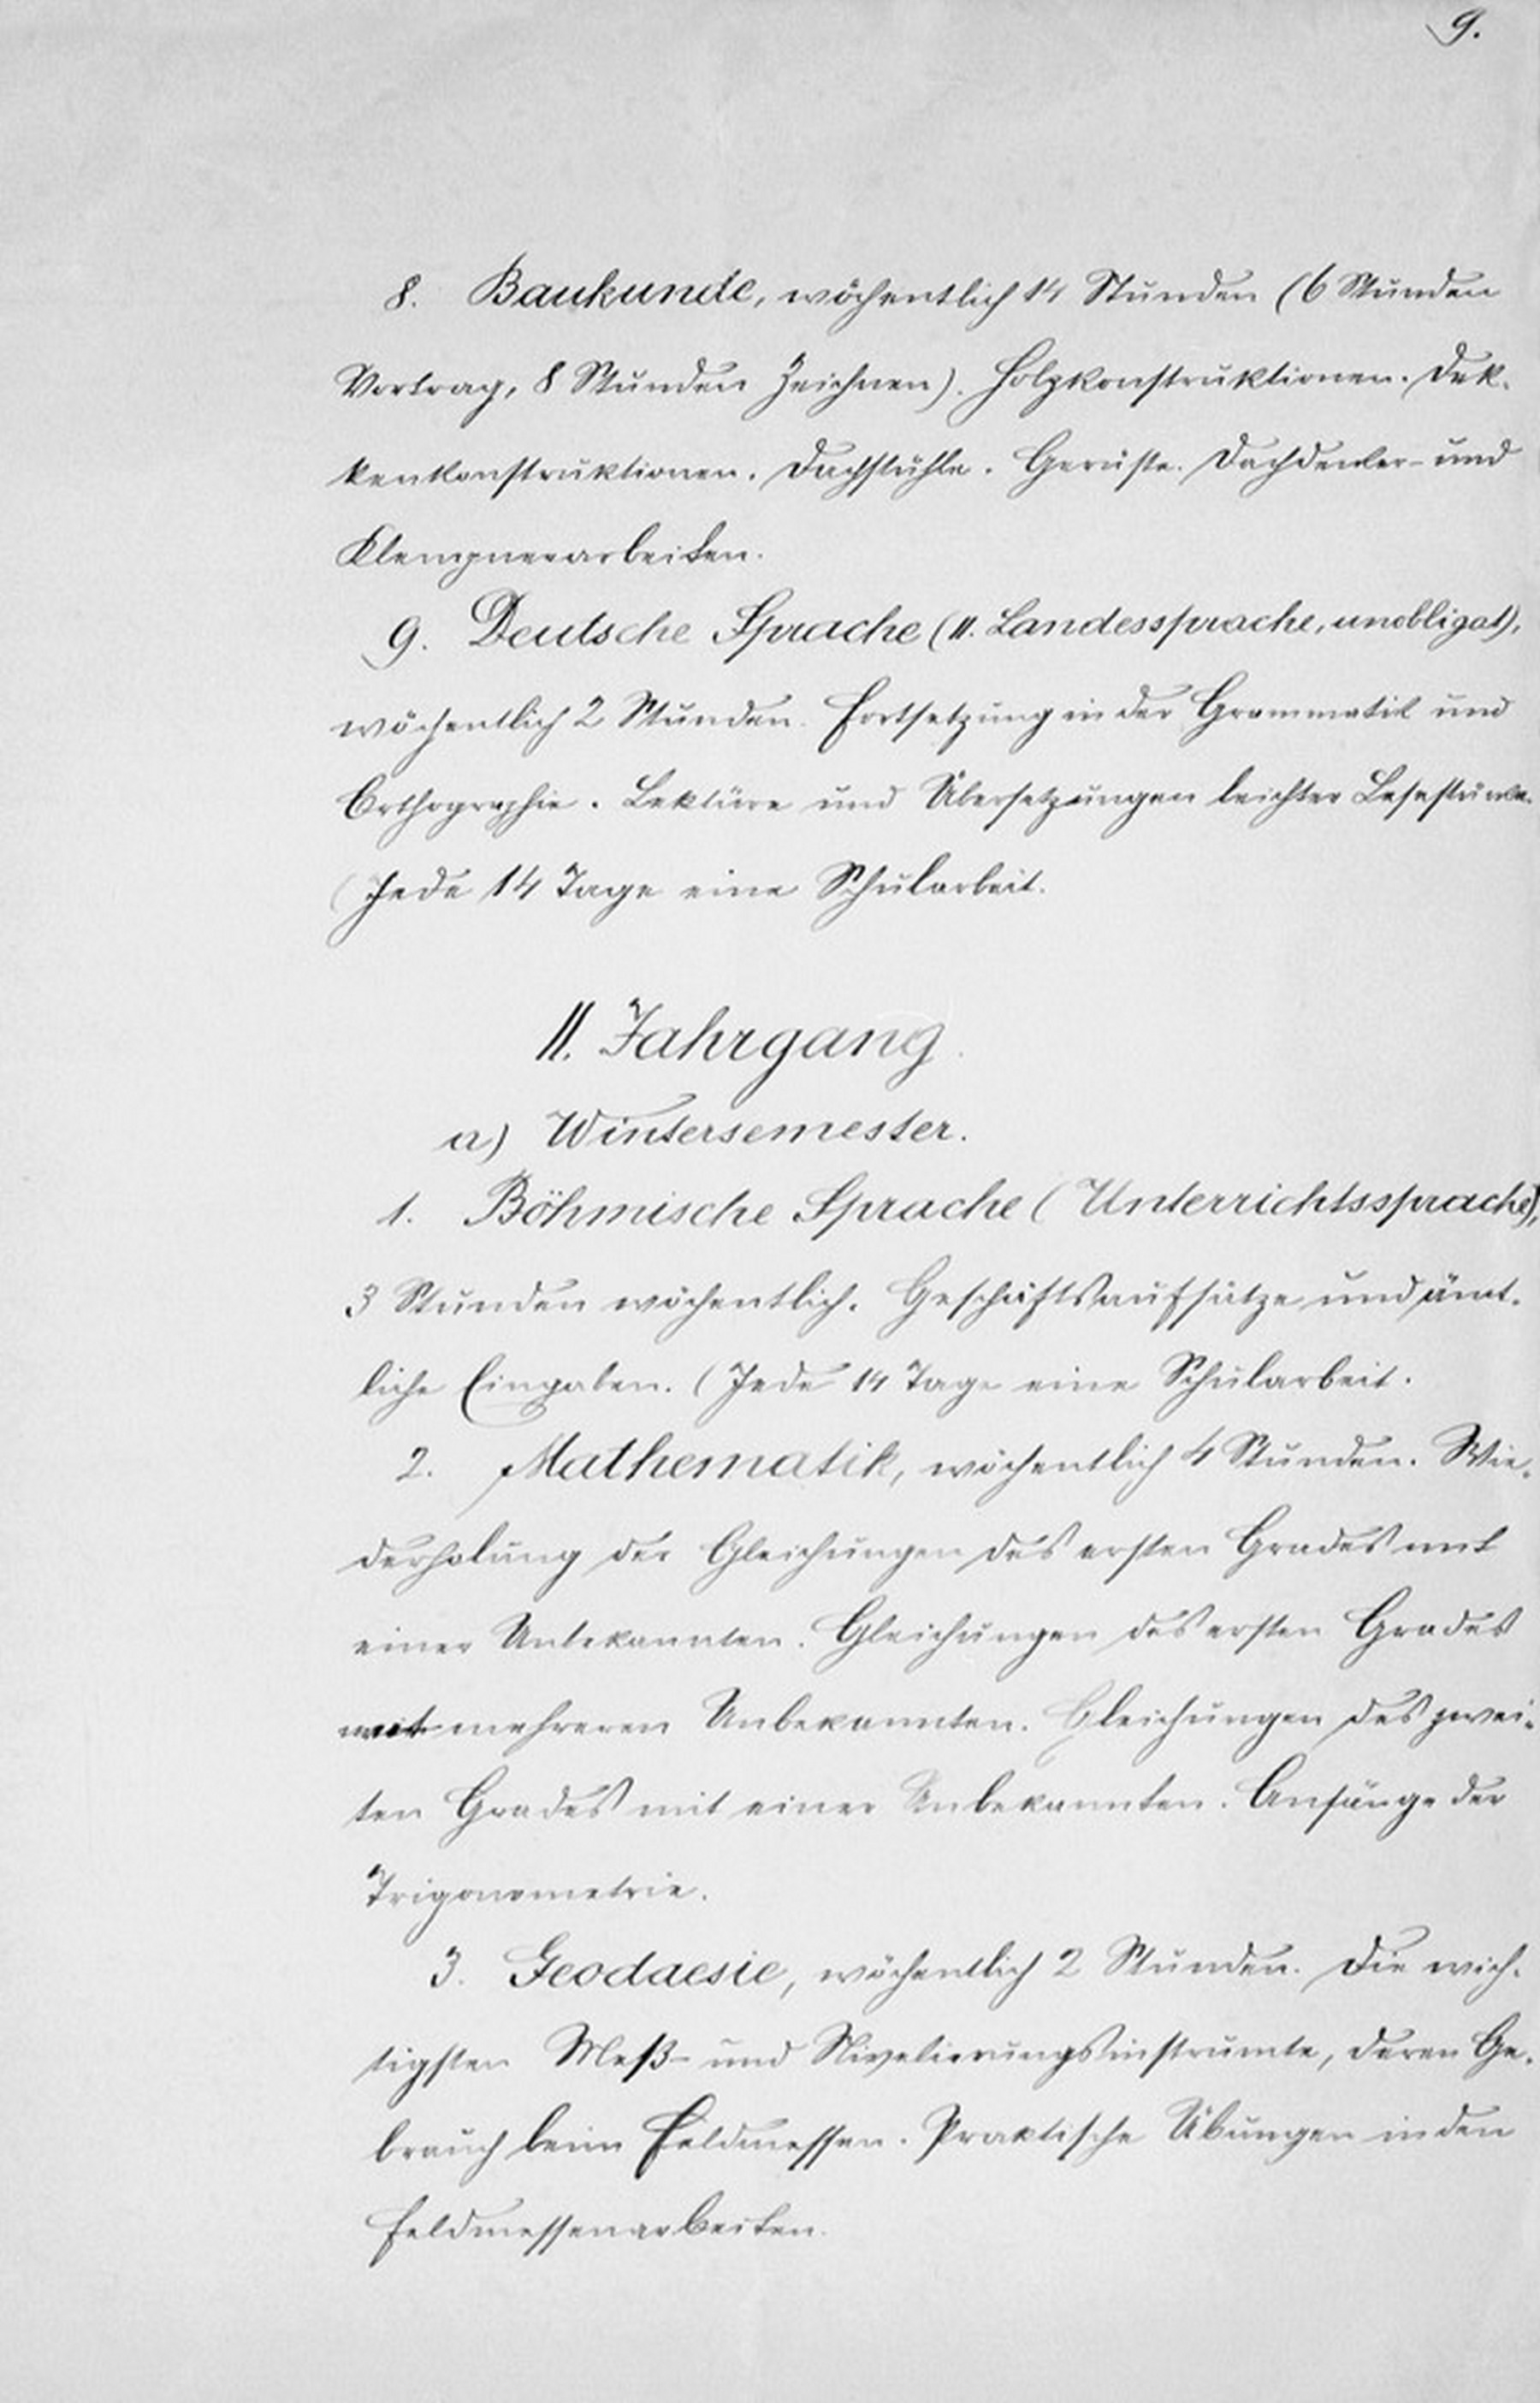 9.
8. Baukunde, wöchentlich 14 Stunden (6 Stunden
Vortrag, 8 Stunden Zeichnen). Holzkonstruktionen. Dek-
kenkonstruktionen. Dachstühle. Gerüste. Dachdecker- und
Klempnerarbeiten.
9. Deutsche Sprache (II. Landessprache, unobligat),
wöchentlich 2 Stunden. Fortsetzung in der Grammatik und
Orthographie. Lektüre und Übersetzungen leichter Lesestücke.
(Jede 14 Tage eine Schularbeit.
II. Jahrgang.
a) Wintersemester.
1. Böhmische Sprache (Unterrichtssprache),
3 Stunden wöchentlich. Geschäftsaufsätze und ämt-
liche Eingaben. (Jede 14 Tage eine Schularbeit.
2. Mathematik, wöchentlich 4 Stunden. Wie-
derholung der Gleichungen des ersten Grades mit
einer Unbekannten. Gleichungen des ersten Grades
mit mehreren Unbekannten. Gleichungen des zwei-
ten Grades mit einer Unbekannten. Anfänge der
Trigonometrie.
3. Geodaesie, wöchentlich 2 Stunden. Die wich-
tigsten Meß- und Nivelierungsinstrumte, deren Ge-
brauch beim Feldmessen. Praktische Übungen in den
Feldmessenarbeiten.